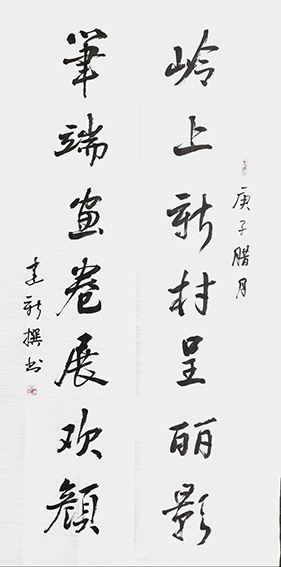 庚子腊月
岭上新村呈丽影
筆端画卷展欢顔
建新撰书